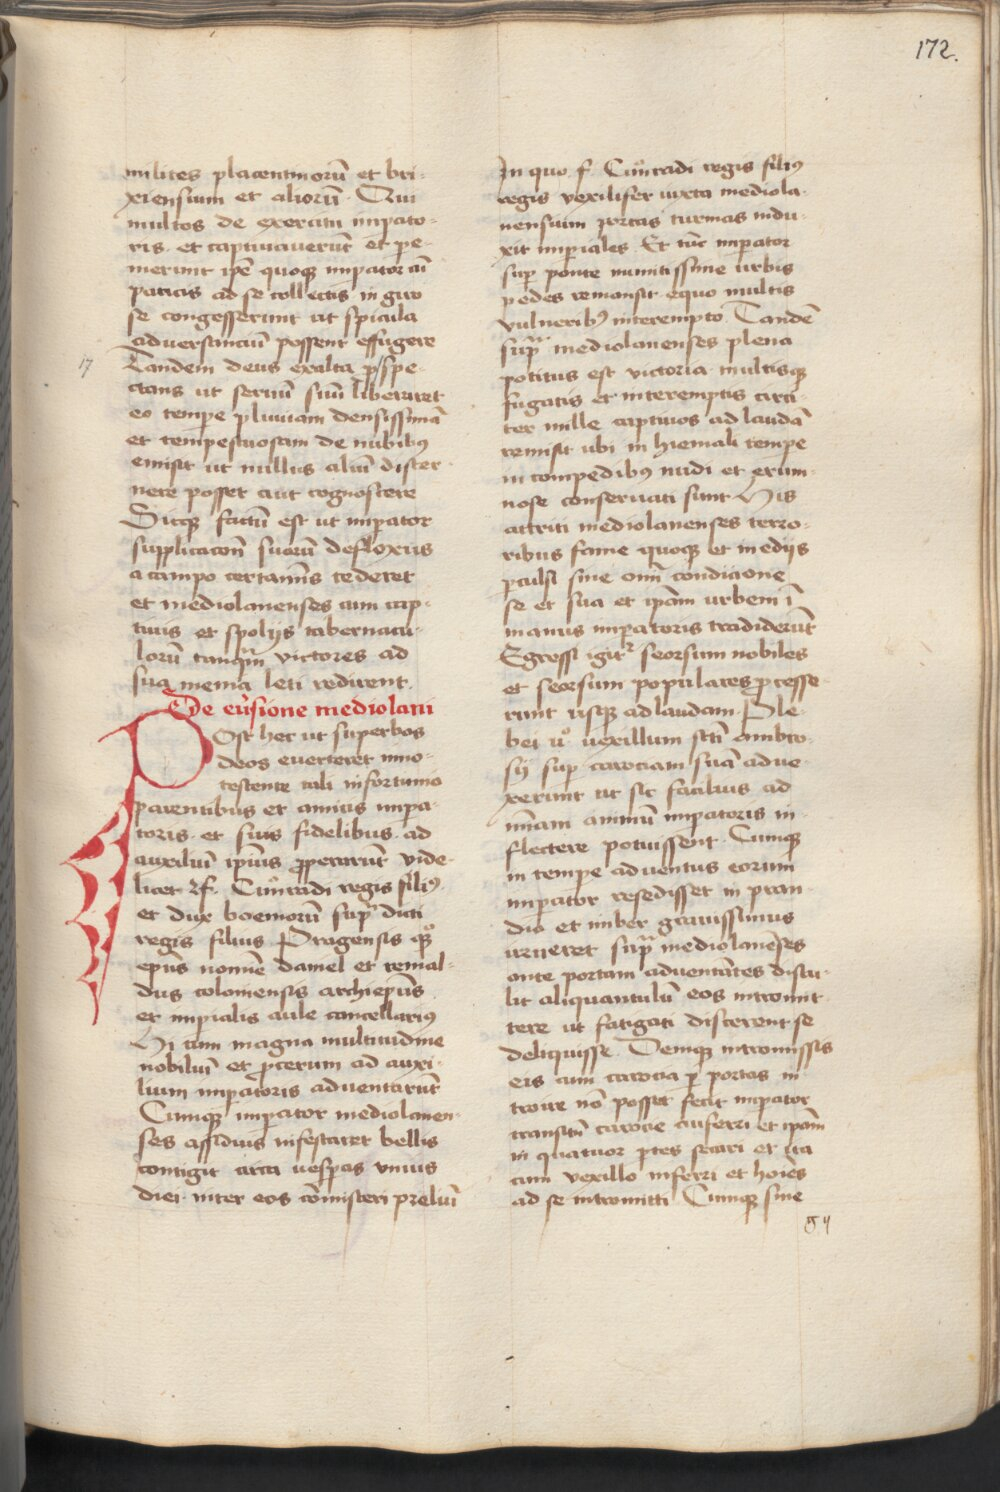 172.
milites placentinorū et bri-
xiensium et aliorū. Qui
multos de exercitu impato-
ris. et captivaverūt et pe-
merunt ipē quoqꝫ impator cū
paucis ad se collectis in giro
se congesserunt ut spicula
adversanciū possent effugere
17
Tandem deus exalta pspe-
ctans ut servū suū liberaret
eo tempe pluviam densissimā
et tempestuosam de nubibꝰ
emisit ut nullus aliū discer-
nere posset aut cognoscere
Sicqꝫ factū est ut imperator
supplicacōn suorū deflexus
a campo certamīs cederet
et mediolanenses cum cap-
tivis et spolijs tabernacu-
lorū tanqm̄ victores ad
sua menia leti redirent.
De ev̄sione mediolani
Post hec ut superbos
deos everteret inno-
testente tali infortunio
parentibus et amicis impa-
toris. et suis fidelibus. ad
auxiliū ipius ꝓperarūt vide-
licet Cūnradi regis filiꝰ.
et dux boemorū supͣ dicti
regis filius Pragensis qͦqꝫ
epūs nomīe daniel et reinal-
dus coloniensis archiepūs
et impialis aule cancellariꝰ
Hi cum magna multitudine
nobiliū et pcerum ad auxi-
lium imperatoris adventarūt
Cumqꝫ imperator mediolanen-
ses assiduis infestaret bellis
contigit circa vesperas unius
diei. inter eos cōmisceri preliū
In quo f. Cūnradi regis filiꝰ
regis vexilifer iuxta mediola-
nensium portas turmas indu-
xit imperiales Et tūc imperator
sup ponte munitissime urbis
pedes remansit equo multis
vulneribꝰ interempto Tandē
supͣ mediolanenses plena
potitus est victoria multisqꝫ
fugatis et interemptis circi-
ter mille captivos ad laudā
remisit ubi in hiemali tempe
in compedibꝰ nudi et erum-
nose conservati sunt His
attriti mediolanenses terro-
ribus fame quoqꝫ et inedijs
pculsi sine omī condicione
se et sua et ipām urbem ī
manus imperatoris tradiderūt
Egressi igitᷣ seorsum nobiles
et seorsum populares pcesse-
runt usqꝫ ad laudam. Ple-
bei vͦ vexillum sctī ambro-
sij sup carociam suā adve-
xerunt ut sic facilius ad
animū impatoris in-
flectere potuissent. Cumqꝫ
in tempe adventus eorum
imperator resedisset in pran-
dio et imber gravissimus
urueret supͣ mediolanēses
ante portam adventātes distu-
lit aliquantulū eos intromit-
tere ut fatigati discerent se
deliquisse. Demqꝫ intromissis
eis cum carocia p portas in-
troire nō posset fecit imperator
transitū carocie auferri et ipām
in quatuor ptes secari et ita
cum vexillo inferri et hoīes
ad se intromitti Cumqꝫ sine